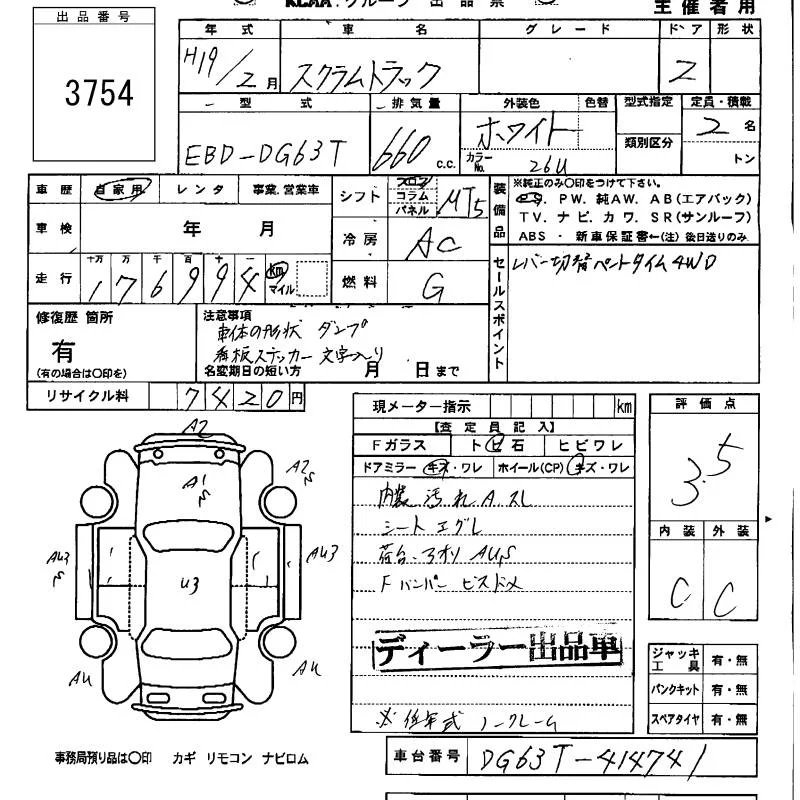 KCAA.グループ 出品票
主催者用
出品番号
3754
年式 車名 グレード ドア 形状
H19/2月 スクラムトラック 2
型式 排気量 外装色 色替 型式指定 定員・積載
EBD-DG63T 660 c.c. ホワイト 2名
カラーNo. 26U 類別区分 トン
車歴 自家用 レンタ 事業.営業車
車検 年 月
走行 十万 万 千 百 十 一
176994 km マイル
シフト フロア コラム パネル MT5
冷房 AC
燃料 G
装備品
※純正のみ〇印をつけて下さい。
PS. PW. 純AW. AB(エアバック)
TV. ナビ. カワ. SR(サンルーフ)
ABS ・ 新車保証書←(注) 後日送りのみ
セールスポイント
レバー切替パートタイム4WD
修復歴 箇所
有
(有の場合は〇印を)
注意事項
車体の形状 ダンプ
看板ステッカー文字入り
名変期日の短い方 月 日まで
リサイクル料 7420円
現メーター指示 km
【査定員記入】
Fガラス トビ石 ヒビワレ
ドアミラー キズ・ワレ ホイール(CP) キズ・ワレ
内装 汚れ A.スレ
シート エグレ
荷台.アオリ AUS
Fバンパー ビスドメ
ディーラー出品車
※低年式 ノークレーム
評価点
3.5
内装 外装
C C
ジャッキ 工具 有・無
パンクキット 有・無
スペアタイヤ 有・無
A2
A1 S
A2 S
AU3 S
U3
AU3
AU
AU
事務局預り品は〇印 カギ リモコン ナビロム
車台番号 DG63T-414741